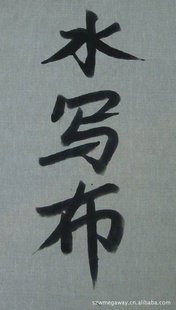 水写布
szwmegaway.cn.alibaba.com